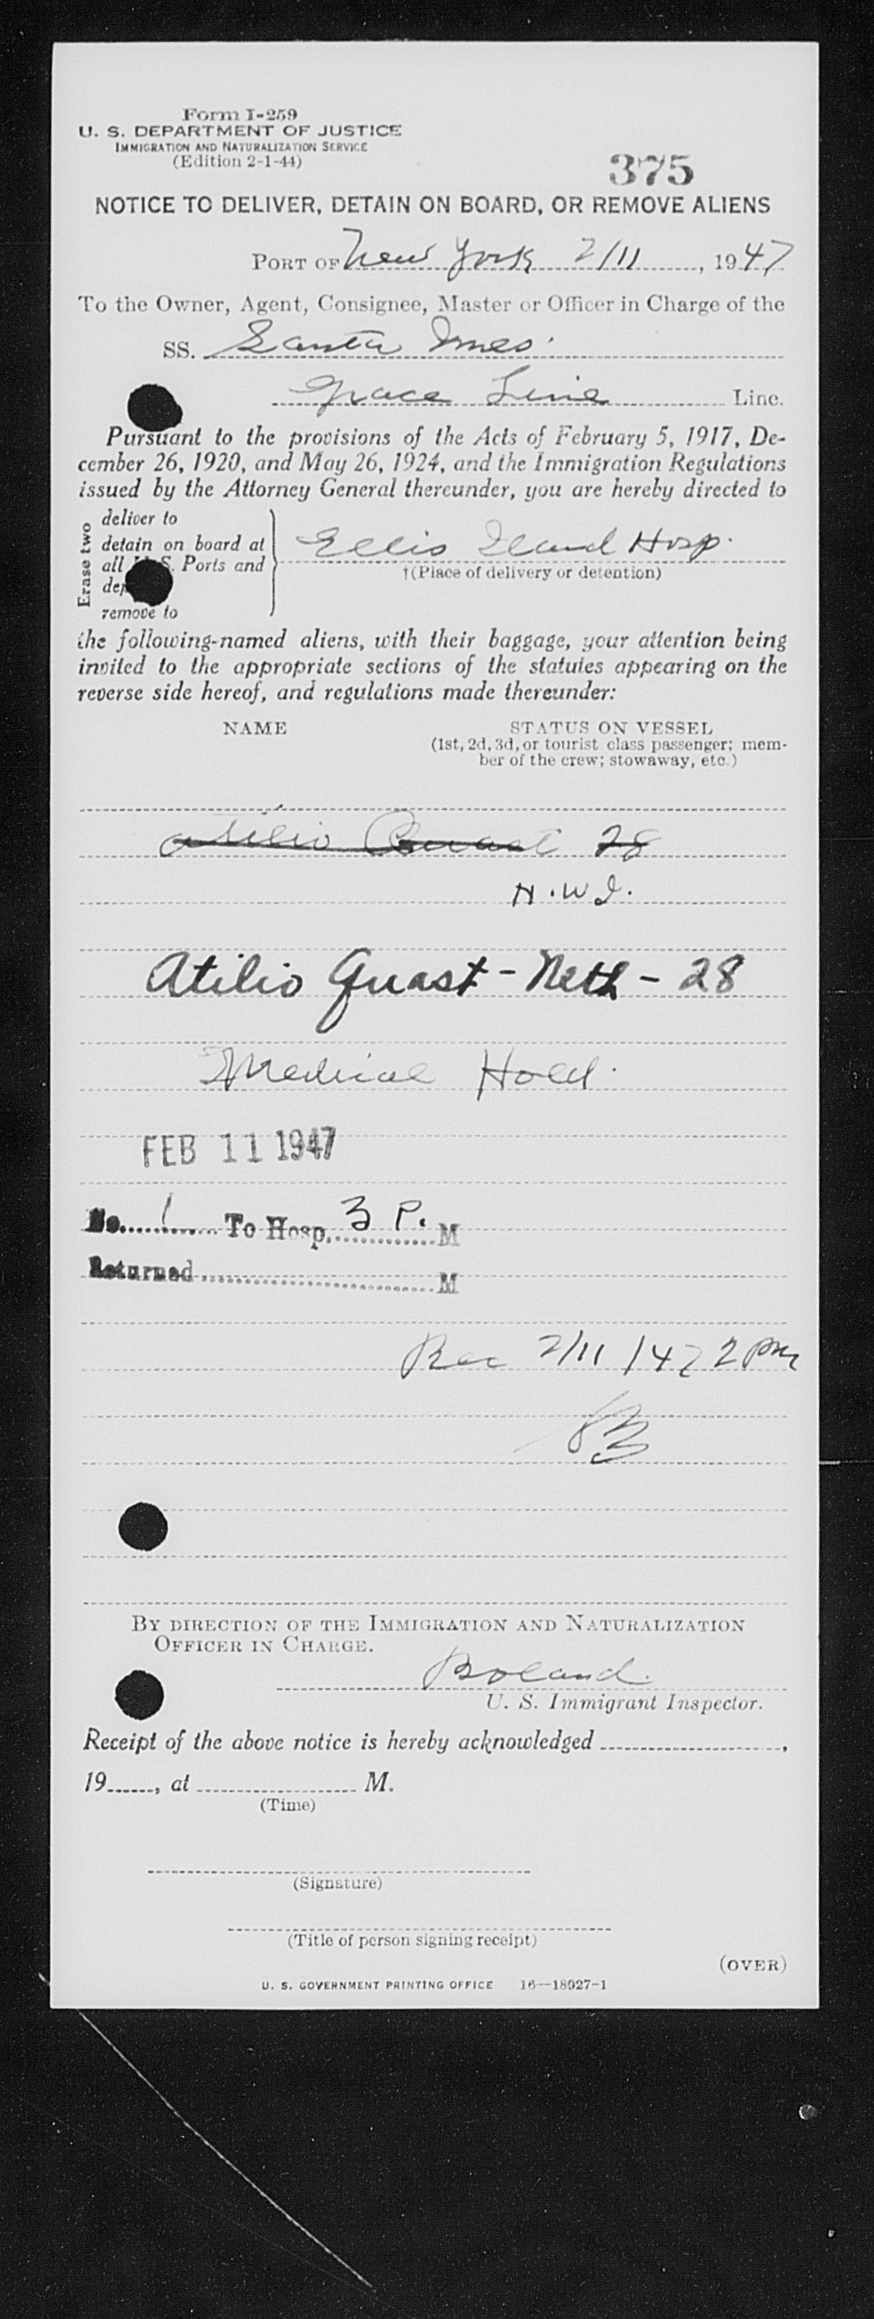 Form I-259
U. S. DEPARTMENT OF JUSTICE
IMMIGRATION AND NATURALIZATION SERVICE
(Edition 2-1-44)
375
NOTICE TO DELIVER, DETAIN ON BOARD, OR REMOVE ALIENS
PORT OF New York 2/11, 1947
To the Owner, Agent, Consignee, Master or Officer in Charge of the
SS. Santa Ines
Grace Line Line.
Pursuant to the provisions of the Acts of February 5, 1917, De-
cember 26, 1920, and May 26, 1924, and the Immigration Regulations
issued by the Attorney General thereunder, you are hereby directed to
Erase two
deliver to
detain on board at
all U. S. Ports and
remove to
Ellis Island Hosp.
†(Place of delivery or detention)
the following-named aliens, with their baggage, your attention being
invited to the appropriate sections of the statutes appearing on the
reverse side hereof, and regulations made thereunder:
NAME
STATUS ON VESSEL
(1st, 2d, 3d, or tourist class passenger; mem-
ber of the crew; stowaway, etc.)
Atilio 28
N.W.I.
Atilio Quast - Neth - 28
Medical Hold.
FEB 11 1947
No. 1 To Hosp. 3 P. M
Returned M
Rec 2/11/47 2 pm
By direction of the Immigration and Naturalization
Officer in Charge.
Boland.
U. S. Immigrant Inspector.
Receipt of the above notice is hereby acknowledged ,
19 , at M.
(Time)
(Signature)
(Title of person signing receipt)
(OVER)
U. S. GOVERNMENT PRINTING OFFICE 16—18027-1